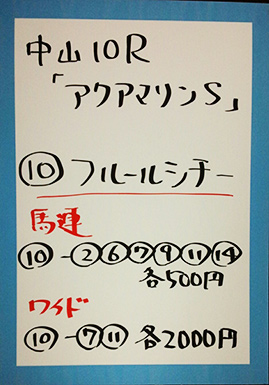 中山10R
「アクアマリンS」
⑩フルールシチー
馬連
⑩-②⑥⑦⑨⑪⑭
各500円
ワイド
⑩-⑦⑪ 各2000円